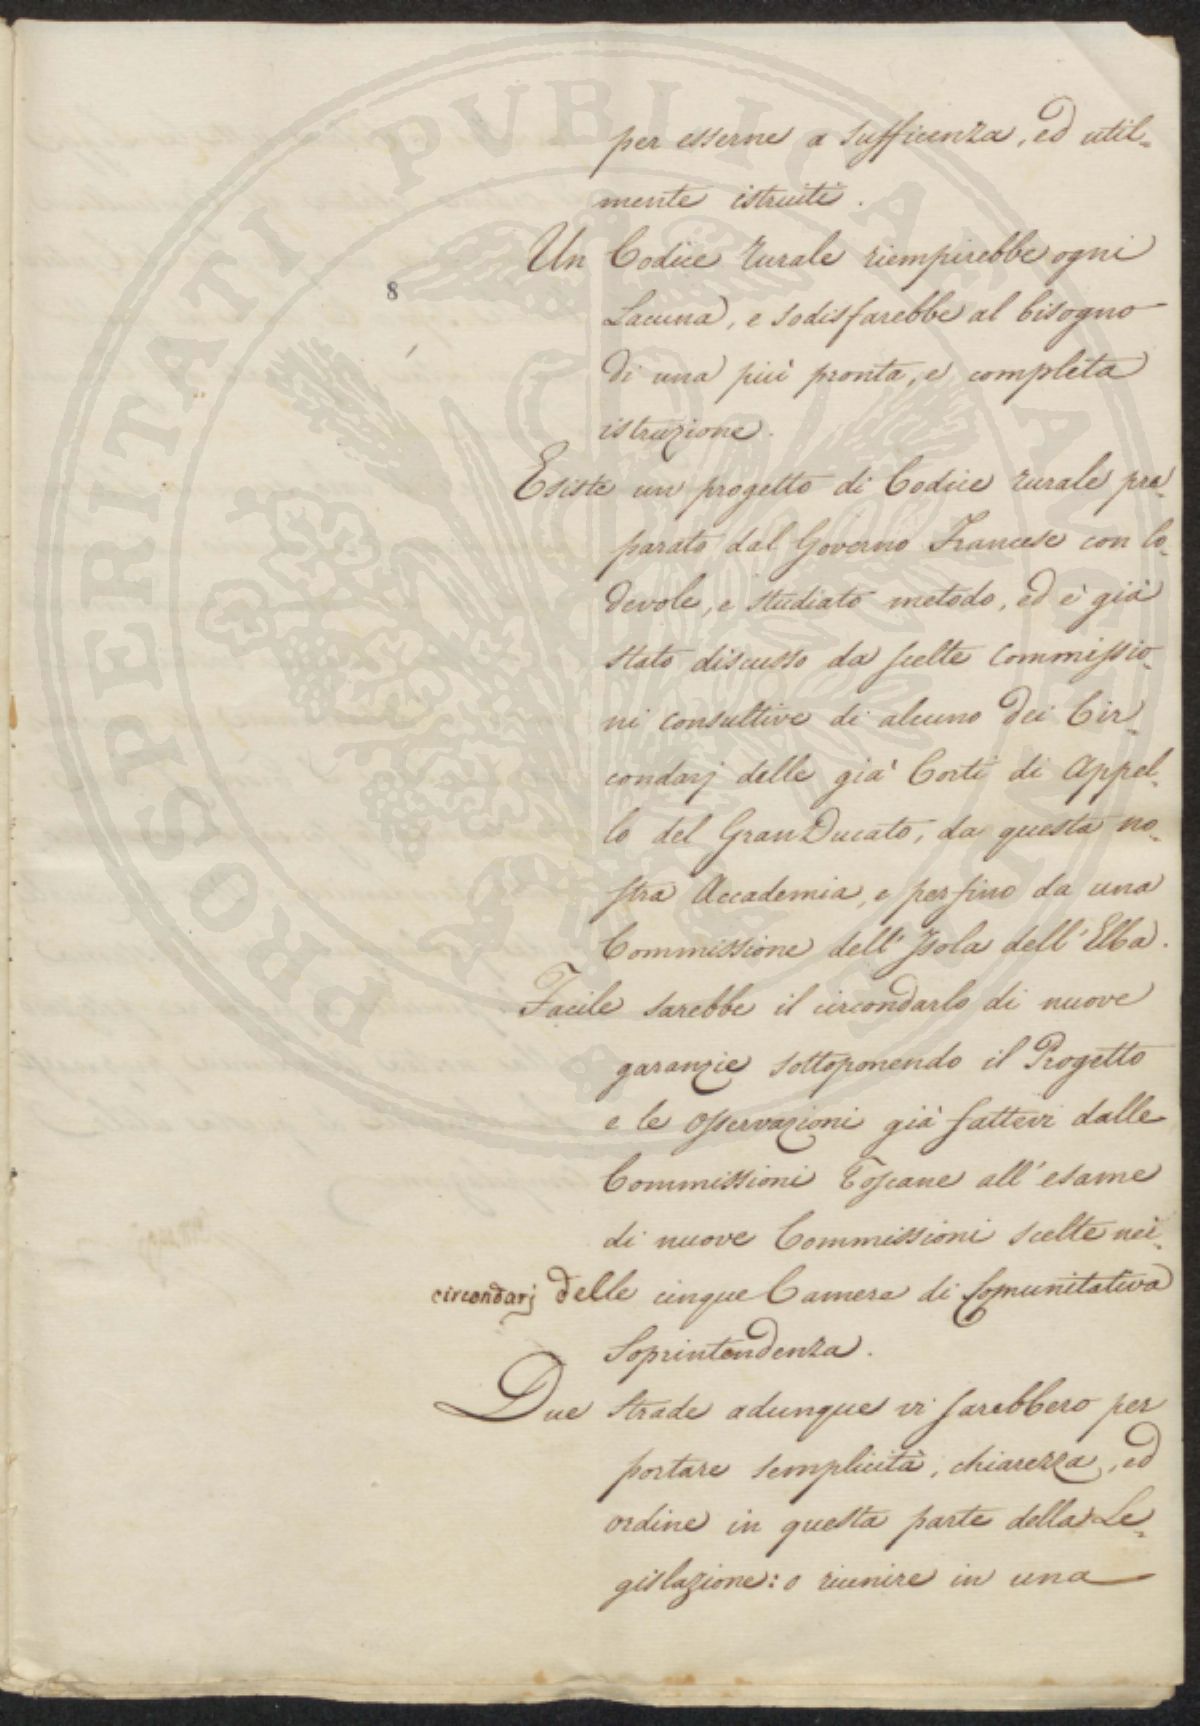 per esserne a sufficenza, ed util=
mente istruiti.
Un Codice rurale riempirebbe ogni
Lacuna, e sodisfarebbe al bisogno
di una più pronta, e completa
istruzione.
Esiste un progetto di Codice rurale pre=
parato dal Governo Francese con lo=
devole, e studiato metodo, ed è già
stato discusso da scelte Commissio=
ni consultive di alcuno dei Cir=
condarj delle già Corti di Appel=
lo del GranDucato, da questa no=
stra Accademia, e perfino da una
Commissione dell' Isola dell' Elba.
Facile sarebbe il circondarlo di nuove
garanzie sottoponendo il Progetto
e le osservazioni già fattevi dalle
Commissioni Toscane all' esame
di nuove Commissioni scelte nei=
circondarj delle cinque Camere di Comunitativa
Soprintendenza.
Due strade adunque vi sarebbero per
portare semplicità, chiarezza, ed
ordine in questa parte della Le=
gislazione: o riunire in una
8
PROSPERITATI PUBLICAE AUGENDAE